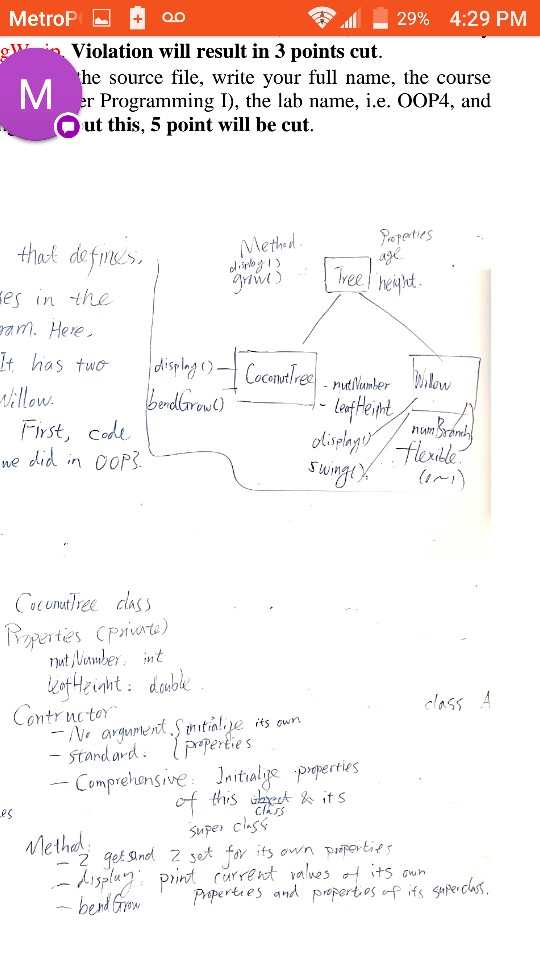 MetroP 29% 4:29 PM
Violation will result in 3 points cut.
the source file, write your full name, the course
er Programming I), the lab name, i.e. OOP4, and
ut this, 5 point will be cut.
M
that defines,
es in the
ram. Here,
It has two
Willow.
First, code
we did in OOP3.
Method
display()
grow()
Tree
Properties
age
height.
display()
bendGrow()
CoconutTree
- nutNumber
- leafHeight
Willow
display()
swing()
numBranch
flexible
(0~1)
CoconutTree class
Properties (private)
nutNumber: int
leafHeight: double
class A
Contructor
- No argument. { initialize its own
- standard. { properties
- Comprehensive: Initialize properties
of this object class & its
super class
es
Method:
- 2 get and 2 set for its own properties
- display: print current values of its own
properties and properties of its superclass.
- bendGrow